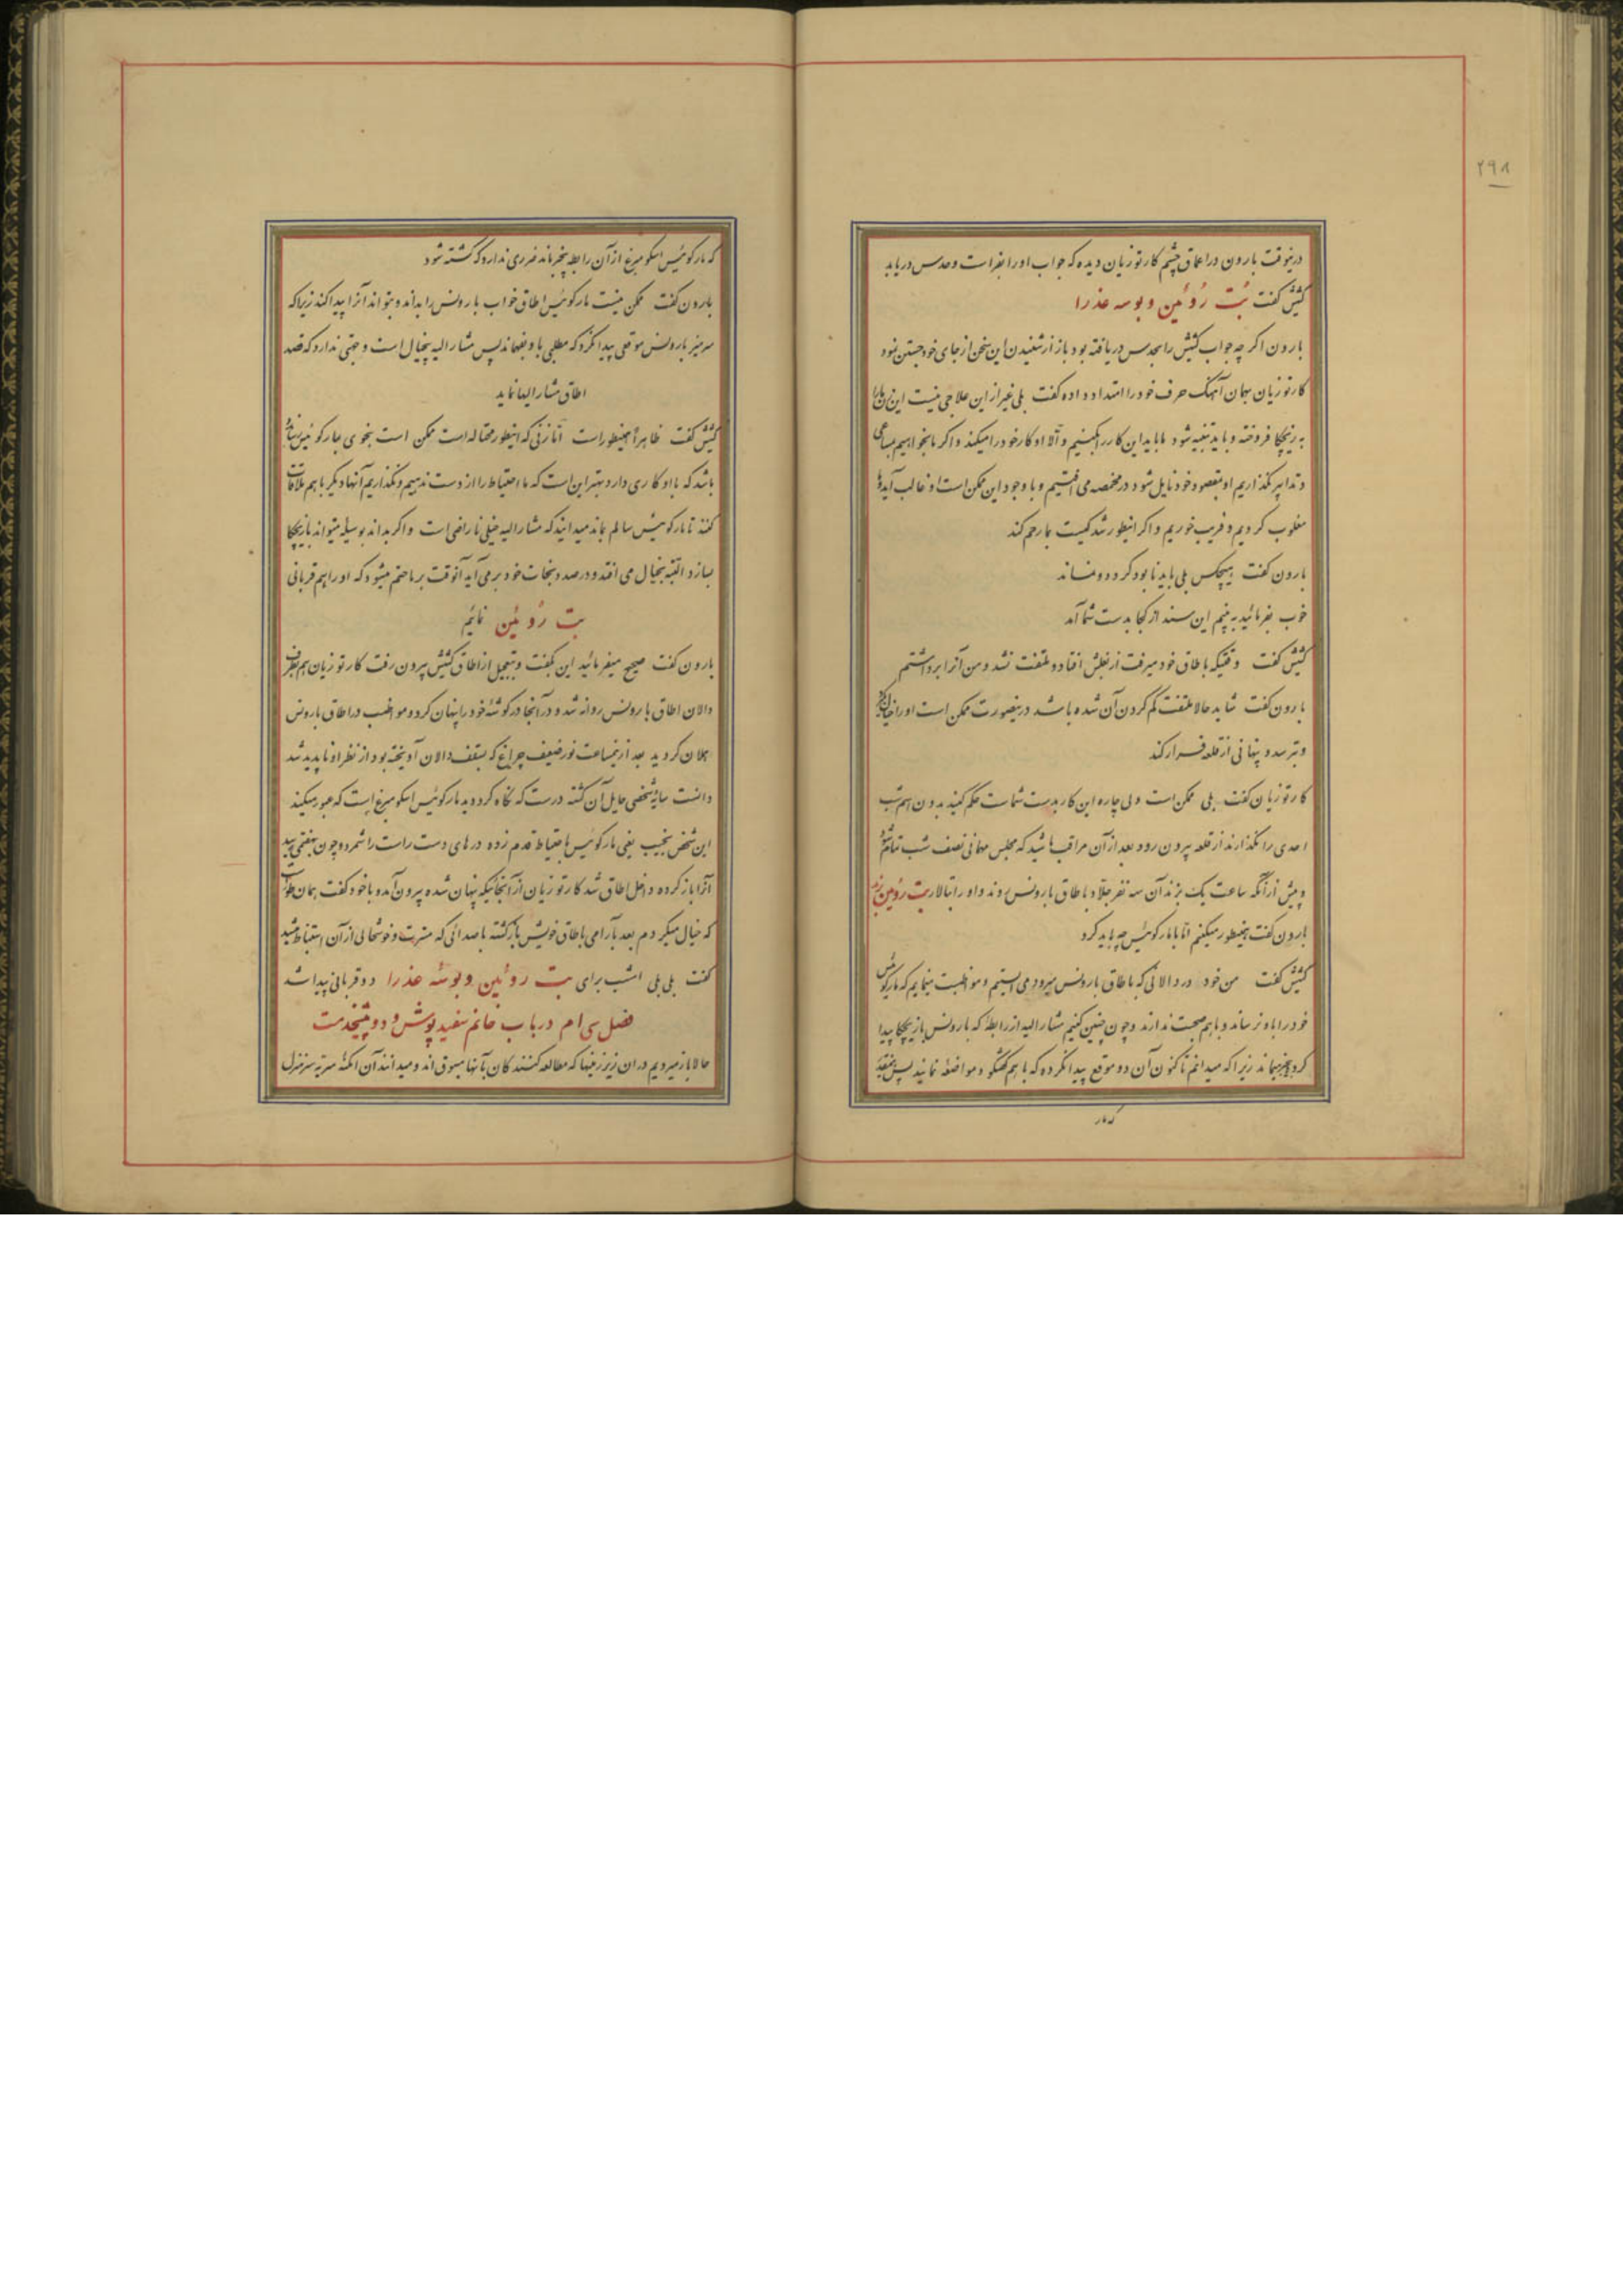 ۲۹۸
درینوقت بارون در اعماق چشم کارتوزیان دیده که جواب او را بفراست و حدس دریابد
کشیش گفت بُت رُوئین و بوسه عذرا
بارون اگر چه جواب کشیش را بحدس دریافته بود باز از شنیدن این سخن از جای خود جستن نمود
کارتوزیان بهمان آهنگ حرف خود را امتداد داده گفت بلی غیر از این علاجی نیست این زن ما را
به زیچکا فروخته و باید تنبیه شود ما باید این کار را بکنیم والا او کار خود را میکند و اگر ما بخواهیم بمساعی
و تدابیر بگذاریم او بمقصود خود نایل شود در مخمصه می افتیم و با وجود این ممکن است او غالب آید و ما
مغلوب گردیم و فریب خوریم و اگر اینطور شد کیست بما رحم کند
بارون گفت هیچکس بلی باید نابود گردد و نماند
خوب بفرمائید به بینم این سند از کجا بدست شما آمد
کشیش گفت وقتیکه باطاق خود میرفت از بغلش افتاد و ملتفت نشد و من آنرا برداشتم
بارون گفت شاید حالا ملتفت گم کردن آن شده باشد درینصورت ممکن است او را خیال گیرد
و بترسد و پنهانی از قلعه فرار کند
کارتوزیان گفت بلی ممکن است ولی چاره این کار بدست شماست حکم کنید بدون اسم شب
احدی را نگذارند از قلعه بیرون رود بعد از آن مراقب باشید که مجلس مهمانی نصف شب تمام شود
و پیش از آنکه ساعت یک بزند آن سه نفر جلاد باطاق بارونس روند و او را بتالار بت رؤئین برند
بارون گفت همینطور میکنم اما با مارکوئیس چه باید کرد
کشیش گفت من خود در دالانی که باطاق بارونس میرود می ایستم و مواظبت مینمایم که مارکوئیس
خود را باو نرساند و باهم صحبت ندارند و چون چنین کنیم مشارالیه از رابطه که بارونس با زیچکا پیدا
کرده بیخبر میماند زیرا که میدانم تا کنون آن دو موقع پیدا نکرده که باهم گفتگو و مواضعه نمایند پس همینقدر
که مار
که مارکوئیس اسکومبرغ از آن رابطه بیخبر ماند ضرری ندارد که کشته شود
بارون گفت ممکن نیست مارکوئیس اطاق خواب بارونس را بداند و بتواند آنرا پیدا کند زیرا که
سر میز بارونس موقعی پیدا نکرد که مطلبی باو بفهماند پس مشارالیه بیخیال است و جهتی ندارد که قصد
اطاق مشارالیها نماید
کشیش گفت ظاهراً همینطور است اما زنی که اینطور محتاله است ممکن است بنحوی بمارکوئیس رسانده
باشد که با او کاری دارد بهتر این است که ما احتیاط را از دست ندهیم و نگذاریم آنها دیگر باهم ملاقات
کنند تا مارکوئیس سالم بماند میدانید که مشارالیه خیلی ناراضی است و اگر بداند بوسیله میتواند با زیچکا
بسازد البته بخیال می افتد و درصدد نجات خود برمی آید آنوقت بر ما حتم میشود که او را هم قربانی
بت رُوئین نمائیم
بارون گفت صحیح میفرمائید این بگفت و بتعجیل از اطاق کشیش بیرون رفت کارتوزیان هم بطرف
دالان اطاق بارونس روانه شد و در آنجا در گوشهٔ خود را پنهان کرد و مواظب در اطاق بارونس
بهلان گردید بعد از نیمساعت نور ضعیف چراغ که بسقف دالان آویخته بود از نظر او ناپدید شد
دانست سایهٔ شخصی حایل آن گشته درست که نگاه کرد دید مارکوئیس اسکومبرغ است که عبور میکند
این شخص نجیب یعنی مارکوئیس باحتیاط قدم زده درهای دست راست را شمرد و چون بهفتمی رسید
آنرا باز کرده داخل اطاق شد کارتوزیان از آنجائیکه پنهان شده بیرون آمد و با خود گفت همان طور است
که خیال میکردم بعد بآرامی باطاق خویش بازگشته با صدائی که مسرت و خوشحالی از آن استنباط میشد
گفت بلی بلی امشب برای بت روئین و بوسهٔ عذرا دو قربانی پیدا شد
فصل سی ام در باب خانم سفید پوش و دو پیشخدمت
حالا باز میرویم در آن زیرزمینها که مطالعه کنندگان بآنها مسبوق اند و میدانند آن امکنه سر به سر منزل